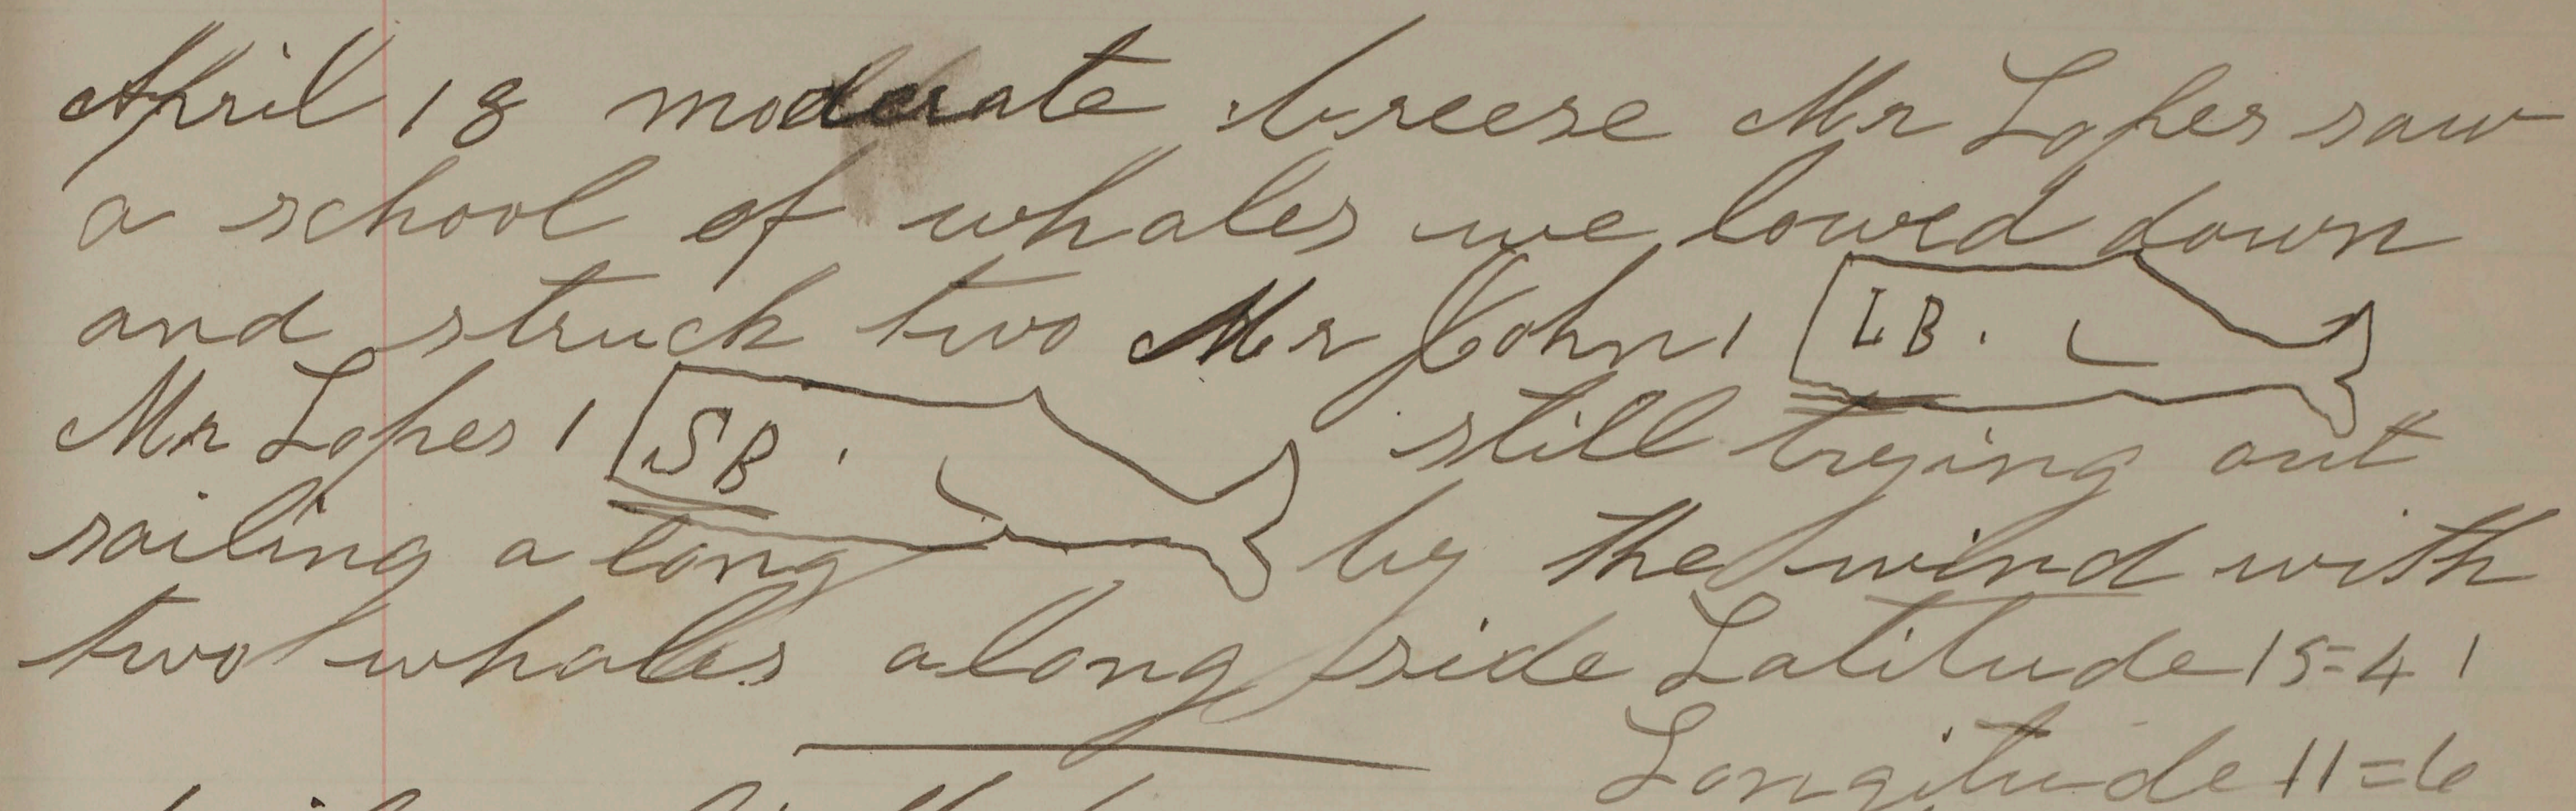 April 18 moderate breese Mr Lopes saw
a school of whales we lowed down
and struck two Mr John 1 LB.
Mr Lopes 1 SB. still trying out
sailing a long by the wind with
two whales along side Latitude 15=41
Longitude 11=6